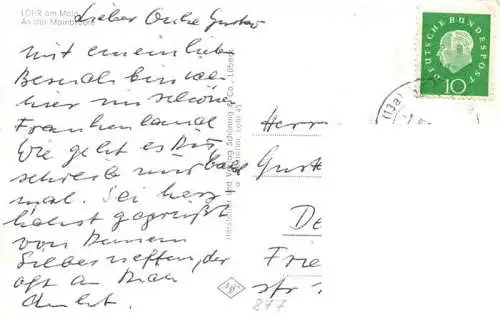 LOHR am Main
An der Mainbrücke
Lieber Onke Gustav
mit einem lieben
Besuch bin ich
hier im schönen
Frankenland
Wie geht es Dir
schreib mir bald
mal. Sei herz
lichst gegrüßt
von Deinem
Silberneffen, der
oft an Dich
denkt.
Hersteller und Verlag Schöning & Co., Lübeck
DEUTSCHE BUNDESPOST
10
(13a)
Herrn
Gust
De
Frie
str
877